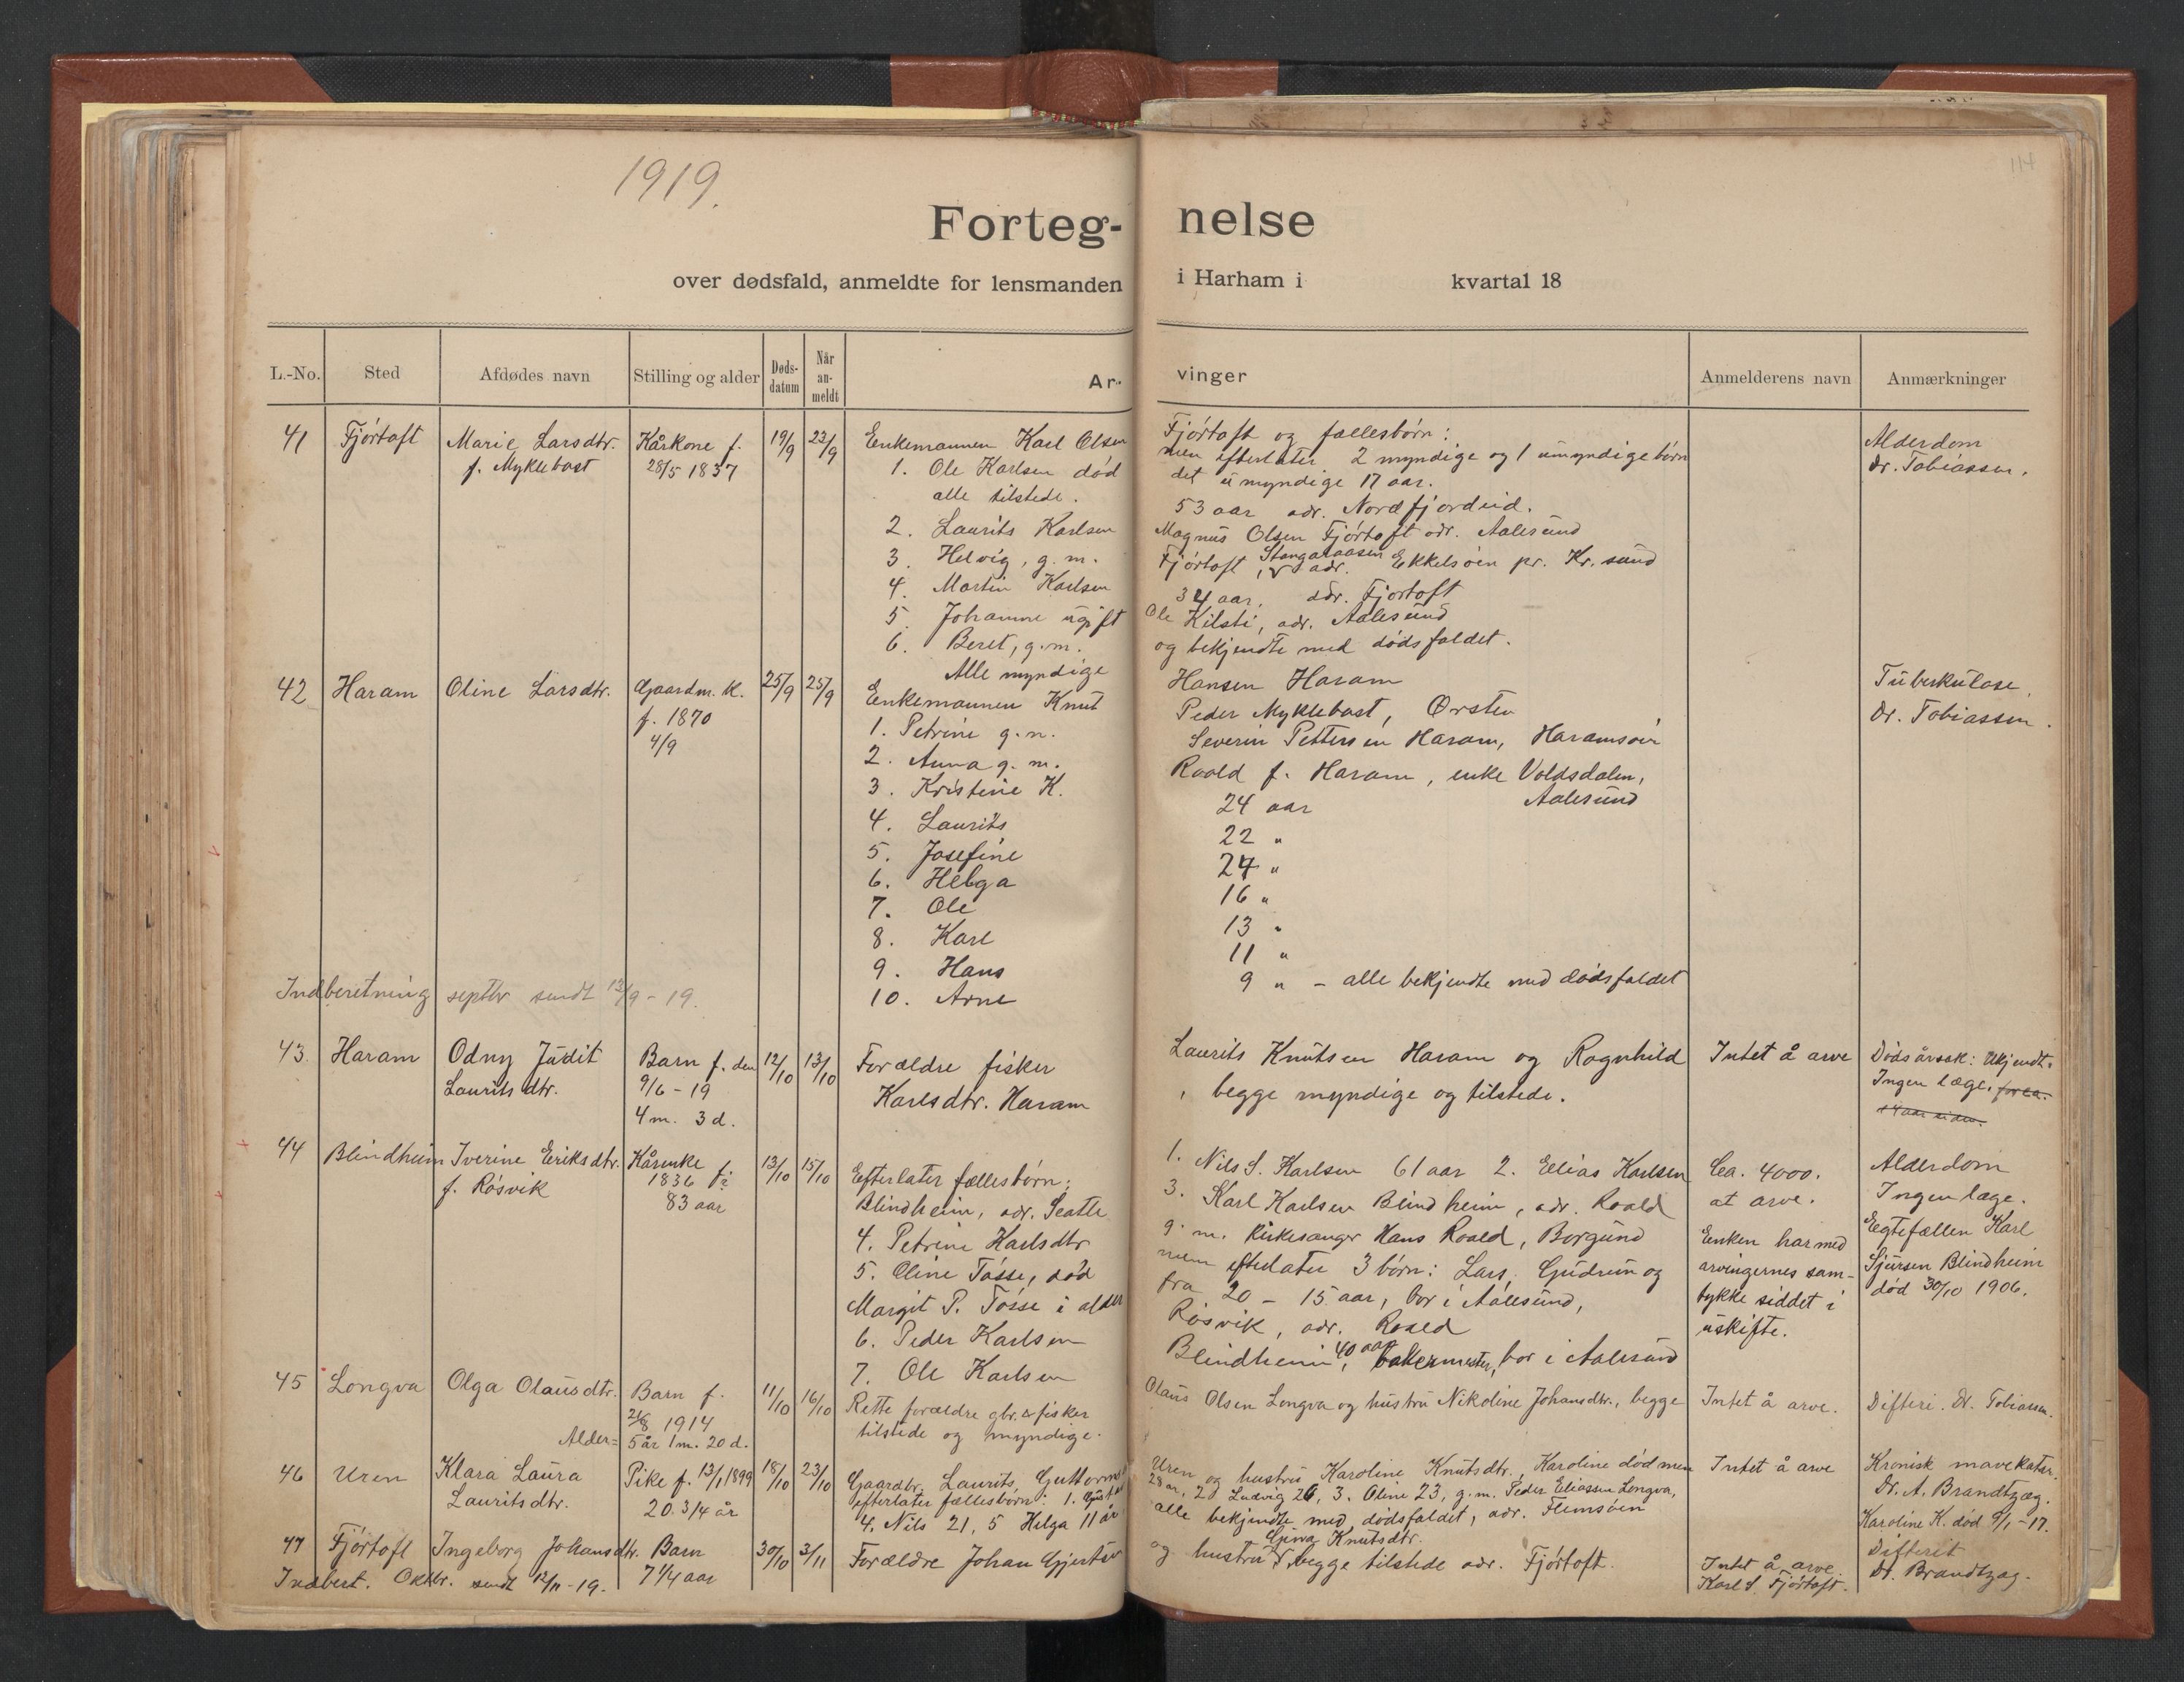 1919.
114
Forteg-nelse
over dødsfald, anmeldte for lensmanden i Harham i kvartal 18
L.-No. Sted Afdødes navn Stilling og alder Døds-datum Når an-meldt Ar-vinger Anmelderens navn Anmærkninger
41 Fjörtoft Marie Larsdtr. Kårkone f. 19/9 23/9 Enkemannen Karl Olsen Fjörtoft og fællesbörn: Alderdom
f. Myklebost 28/5 1837 1. Ole Karlsen död men efterlater 2 myndige og 1 umyndige börn Dr. Tobiassen.
alle tilstede. det umyndige 17 aar.
2. Laurits Karlsen 53 aar adr. Nordfjordeid.
3. Helvig, g. m. Magnus Olsen Fjörtoft adr. Aalesund
4. Martin Karlsen Fjörtoft, adr. Ekkelsöen pr. Kr. sund
5. Johanne ugift 34 aar, adr. Fjörtoft
6. Beret, g. m. Ole Kilsti, adr. Aalesund
Alle myndige og bekjendte med dödsfaldet.
42 Haram Oline Larsdtr. Gaardm. k. 25/9 25/9 Enkemannen Knut Hansen Haram Tuberkulose.
f. 1870 1. Petrine g. m. Peder Myklebost, Örsten Dr. Tobiassen.
4/9 2. Anna g. m. Severin Pettersen Haram, Haramsöen
3. Kristine K. Roald f. Haram, enke Voldsdalen,
4. Laurits 24 aar Aalesund
5. Josefine 22 "
6. Helga 24 "
7. Ole 16 "
8. Karl 13 "
9. Hans 11 "
10. Arne 9 " - alle bekjendte med dödsfaldet
Indberetning septbr sendt 13/9 - 19.
43. Haram Odny Judit Barn f. den 12/10 13/10 Forældre fisker Laurits Knutsen Haram og Ragnhild Intet å arve Dödsårsak: Ukjendt.
Laurits dtr. 9/6 - 19 Karlsdtr. Haram, begge myndige og tilstede. Ingen læge. for ca.
4 m. 3 d. 14 aar siden.
44 Blindheim Iverine Eriksdtr. Kårenke f. 13/10 15/10 Efterlater fællesbörn: 1. Nils S. Karlsen 61 aar 2. Elias Karlsen Ca. 4000. Alderdom
f. Rösvik 1836 Blindheim, adr. Seatle 3. Karl Karlsen Blindheim, adr. Roald at arve. Ingen læge.
83 aar 4. Petrine Karlsdtr g. m. Kirkesanger Hans Roald, Borgund Enken har med Egtefællen Karl
5. Oline Tösse, död men efterlater 3 börn: Lars, Gudrun og arvingernes sam- Sjursen Blindheim
Margit P. Tösse i alder fra 20 - 15 aar, bor i Aalesund, tykke siddet i död 30/10 1906.
6. Peder Karlsen Rösvik, adr. Roald uskifte.
7. Ole Karlsen Blindheim, 40 aar bakermester, bor i Aalesund
45 Longva Olga Olausdtr. Barn f. 11/10 16/10 Rette forældre gbr. & fisker Olaus Olsen Longva og hustru Nikoline Johansdtr., begge Intet å arve. Difteri. Dr. Tobiassen.
21/8 1914 tilstede og myndige.
Alder = 5 år 1 m. 20 d.
46 Uren Klara Laura Pike f. 13/1 1899 18/10 23/10 Gaardbr. Laurits Guttorms Uren og hustru Karoline Knutsdtr., Karoline död men Intet å arve Kronisk mavekatar.
Lauritsdtr. 20 3/4 år efterlater fællesbörn: 1. Gustav 28 år, 2) Ludvig 26, 3. Oline 23, g. m. Peder Eliassen Longva, Dr. A. Brandtzæg.
4. Nils 21, 5 Helga 11 år alle bekjendte med dödsfaldet, adr. Flemsöen Karoline K. död 9/1 - 17.
Gjina Knutsdtr.
47 Fjörtoft Ingeborg Johansdtr. Barn 30/10 3/11 Forældre Johan Gjertsen og hustru begge tilstede adr. Fjörtoft. Intet å arve. Difterit
7 1/4 aar Karl S. Fjörtoft. Dr. Brandtzæg.
Indberet. Oktbr. sendt 12/11 - 19.